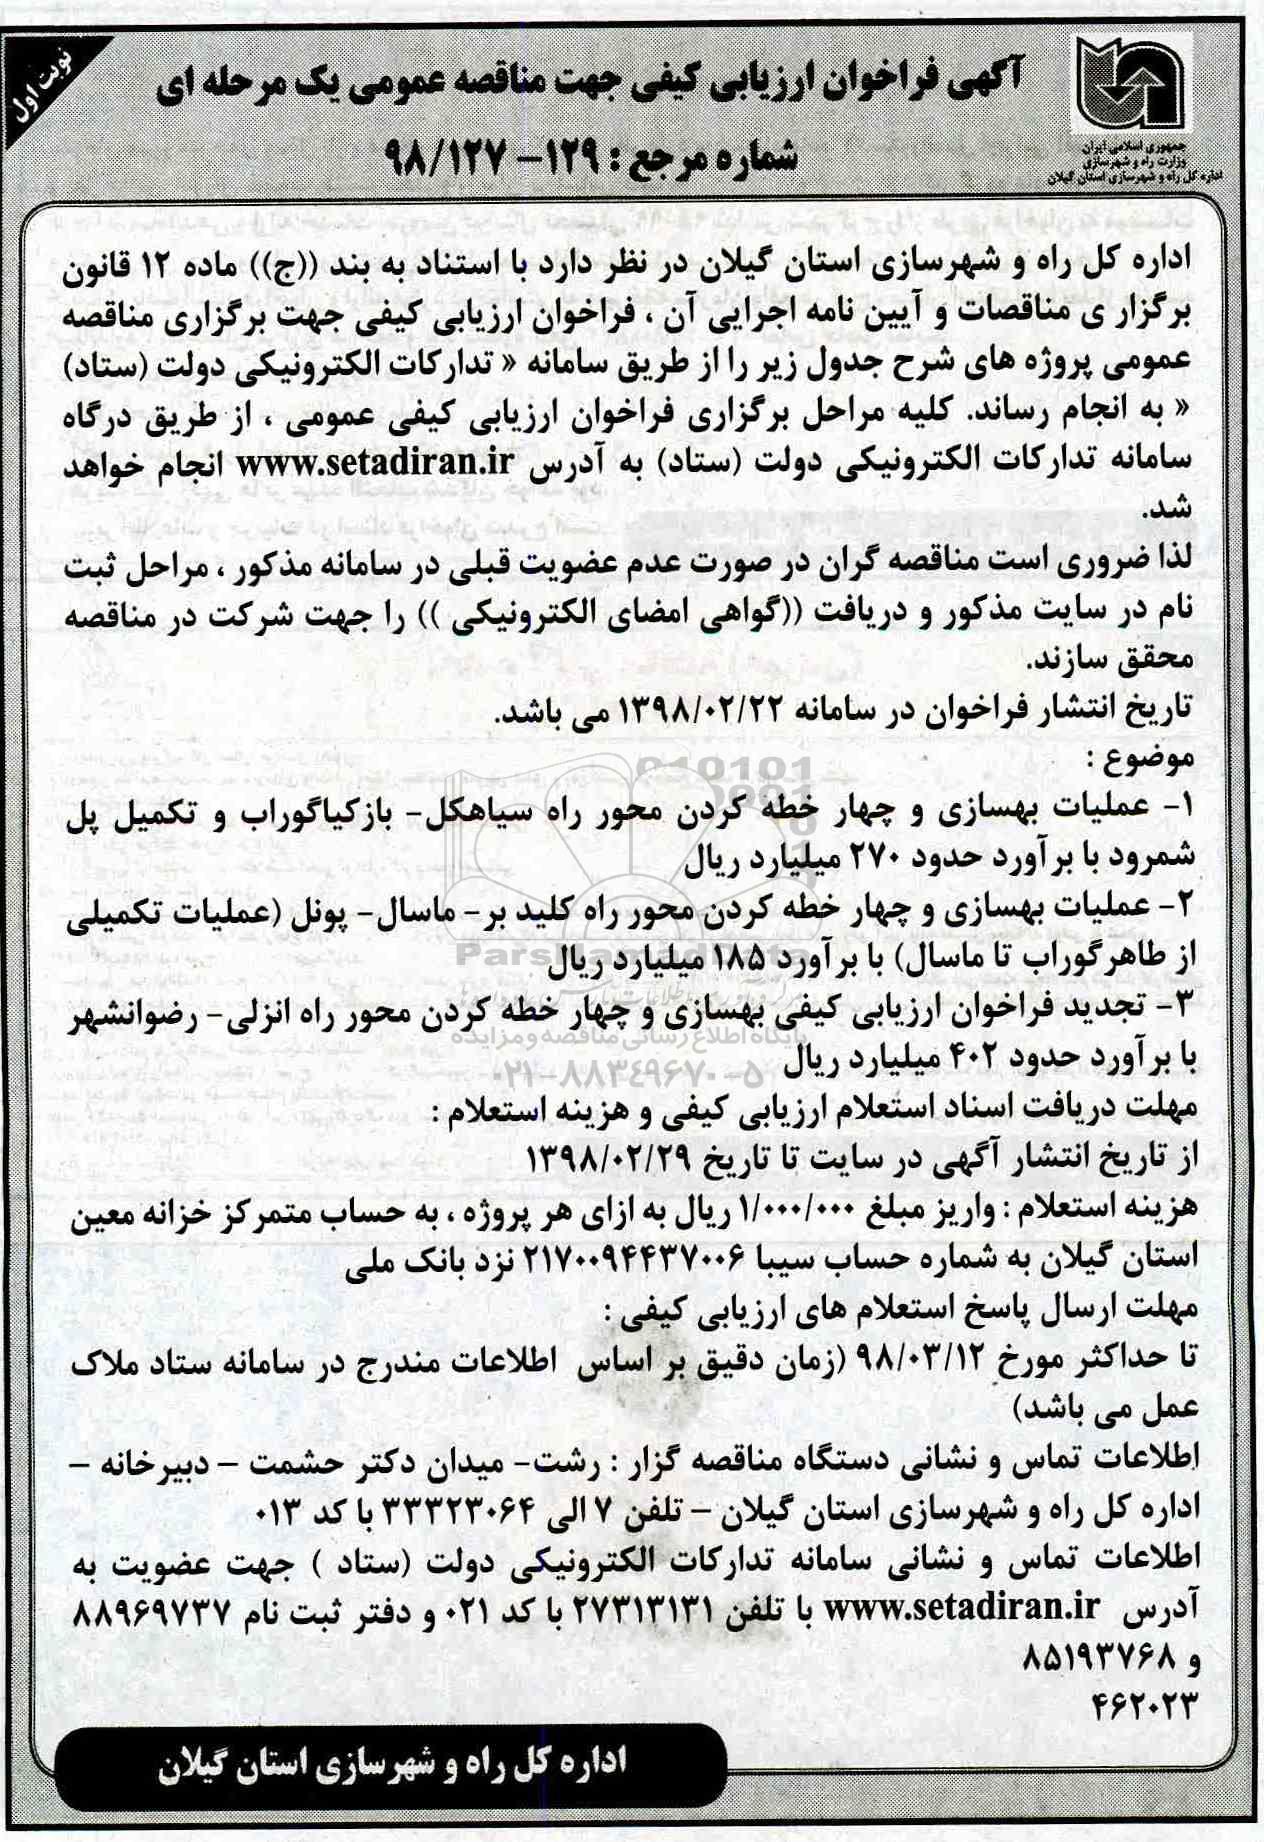 نوبت اول
آگهی فراخوان ارزیابی کیفی جهت مناقصه عمومی یک مرحله ای
شماره مرجع : ۱۲۹- ۹۸/۱۲۷
جمهوری اسلامی ایران
وزارت راه و شهرسازی
اداره کل راه و شهرسازی استان گیلان
اداره کل راه و شهرسازی استان گیلان در نظر دارد با استناد به بند ((ج)) ماده ۱۲ قانون
برگزار ی مناقصات و آیین نامه اجرایی آن ، فراخوان ارزیابی کیفی جهت برگزاری مناقصه
عمومی پروژه های شرح جدول زیر را از طریق سامانه « تدارکات الکترونیکی دولت (ستاد)
« به انجام رساند. کلیه مراحل برگزاری فراخوان ارزیابی کیفی عمومی ، از طریق درگاه
سامانه تدارکات الکترونیکی دولت (ستاد) به آدرس www.setadiran.ir انجام خواهد
شد.
لذا ضروری است مناقصه گران در صورت عدم عضویت قبلی در سامانه مذکور ، مراحل ثبت
نام در سایت مذکور و دریافت ((گواهی امضای الکترونیکی )) را جهت شرکت در مناقصه
محقق سازند.
تاریخ انتشار فراخوان در سامانه ۱۳۹۸/۰۲/۲۲ می باشد.
موضوع :
۱- عملیات بهسازی و چهار خطه کردن محور راه سیاهکل- بازکیاگوراب و تکمیل پل
شمرود با برآورد حدود ۲۷۰ میلیارد ریال
۲- عملیات بهسازی و چهار خطه کردن محور راه کلید بر- ماسال- پونل (عملیات تکمیلی
از طاهرگوراب تا ماسال) با برآورد ۱۸۵ میلیارد ریال
ParsNamadData
۳- تجدید فراخوان ارزیابی کیفی بهسازی و چهار خطه کردن محور راه انزلی- رضوانشهر
پایگاه اطلاع رسانی مناقصه و مزایده
با برآورد حدود ۴۰۲ میلیارد ریال
۰۲۱-۸۸۳۴۹۶۷۰-۵
مهلت دریافت اسناد استعلام ارزیابی کیفی و هزینه استعلام :
از تاریخ انتشار آگهی در سایت تا تاریخ ۱۳۹۸/۰۲/۲۹
هزینه استعلام : واریز مبلغ ۱/۰۰۰/۰۰۰ ریال به ازای هر پروژه ، به حساب متمرکز خزانه معین
استان گیلان به شماره حساب سیبا ۲۱۷۰۰۹۴۴۳۷۰۰۶ نزد بانک ملی
مهلت ارسال پاسخ استعلام های ارزیابی کیفی :
تا حداکثر مورخ ۹۸/۰۳/۱۲ (زمان دقیق بر اساس اطلاعات مندرج در سامانه ستاد ملاک
عمل می باشد)
اطلاعات تماس و نشانی دستگاه مناقصه گزار : رشت- میدان دکتر حشمت – دبیرخانه –
اداره کل راه و شهرسازی استان گیلان – تلفن ۷ الی ۳۳۳۲۳۰۶۴ با کد ۰۱۳
اطلاعات تماس و نشانی سامانه تدارکات الکترونیکی دولت (ستاد ) جهت عضویت به
آدرس www.setadiran.ir با تلفن ۲۷۳۱۳۱۳۱ با کد ۰۲۱ و دفتر ثبت نام ۸۸۹۶۹۷۳۷
و ۸۵۱۹۳۷۶۸
۴۶۲۰۲۳
اداره کل راه و شهرسازی استان گیلان